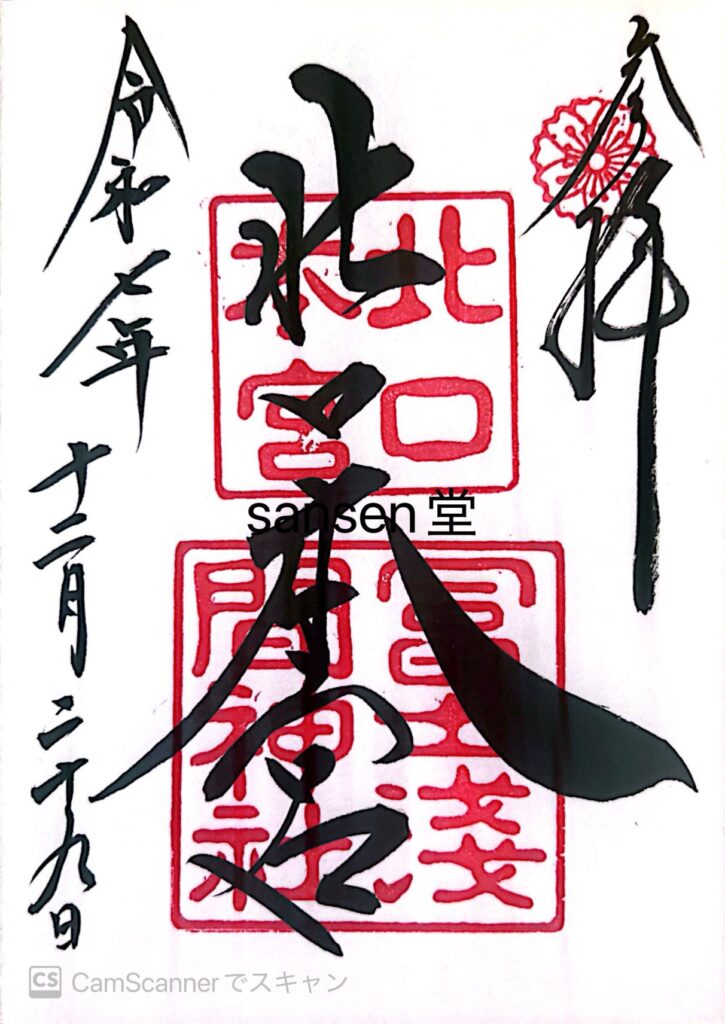 参拝
北口
本宮
冨士浅
間神社
北口本宮
令和七年
十二月二十九日
sansen堂
CS CamScannerでスキャン